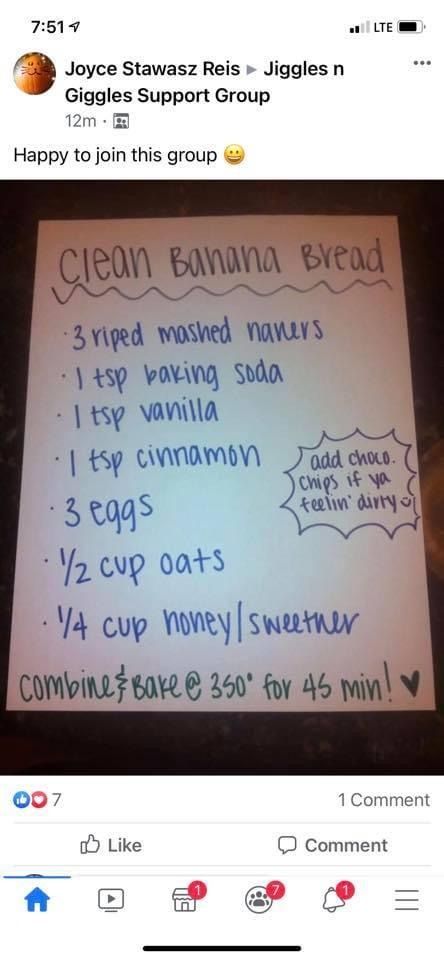 7:51
LTE
Joyce Stawasz Reis ▸ Jiggles n
Giggles Support Group
12m ·
Happy to join this group 😀
Clean Banana Bread
· 3 riped mashed naners
· 1 tsp baking soda
· 1 tsp vanilla
· 1 tsp cinnamon
add choco.
chips if ya
feelin' dirty
· 3 eggs
· 1/2 cup oats
· 1/4 cup honey/sweetner
combine & Bake @ 350° for 45 min! ♥
7
1 Comment
Like
Comment
1
7
1